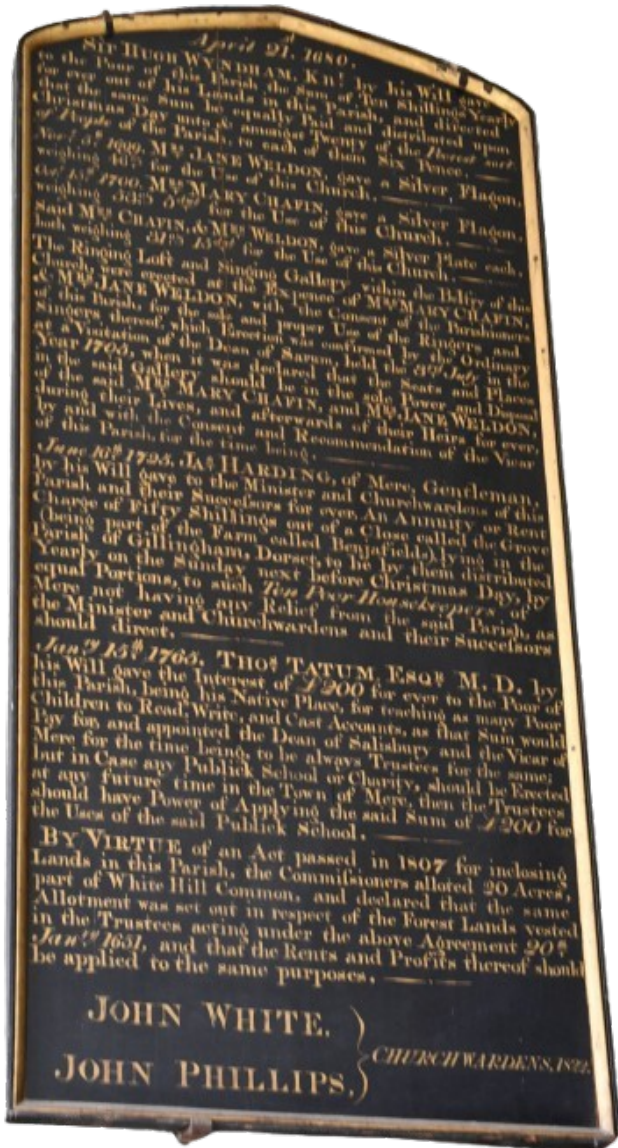 April 21. 1680.
Sir HUGH WYNDHAM, Knt. by his Will gave
to the Poor of this Parish the Sum of Ten Shillings Yearly
for ever out of his Lands in this Parish and directed
that the same Sum be equally laid and distributed upon
Christmas Day unto & amongst Twenty of the Poorest sort
of People of the Parish, to each of them Six Pence.
1699. Mrs. JANE WELDON, gave a Silver Flagon,
weighing for the Use of this Church.
1700. Mrs. MARY CHAFIN, gave a Silver Flagon,
weighing for the Use of this Church.
Said Mrs. CHAFIN, & Mrs. WELDON, gave a Silver Plate each,
both weighing for the Use of this Church.
The Ringing Loft and Singing Gallery within the Belfry of the
Church were erected at the Expence of Mrs. MARY CHAFIN,
& Mrs. JANE WELDON, with the Consent of the Parishioners
of this Parish, for the sole and proper Use of the Ringers and
Singers thereof, which Erection was confirmed by the Ordinary
at a Visitation of the Dean of Sarum, held the 3rd July in the
Year 1705, when it was declared that the Seats and Places
in the said Gallery should be in the sole Power and Disposal
of the said Mrs. MARY CHAFIN, and Mrs. JANE WELDON,
during their Lives, and afterwards of their Heirs for ever,
by and with the Consent and Recommendation of the Vicar
of this Parish for the time being.
June 16th 1725. Jas. HARDING, of Mere, Gentleman,
by his Will gave to the Minister and Churchwardens of the
Parish and their Succeſsors for ever An Annuity or Rent
Charge of Fifty Shillings out of a Close called the Grove
(being part of the Farm called lying in the
Parish of Gillingham, Dorset to be by them distributed
Yearly on the Sunday next before Christmas Day, by
equal Portions, to such Ten Poor Housekeepers of
Mere not having any Relief from the said Parish, as
the Minister and Churchwardens and their Succeſsors
should direct.
Jany. 15th 1765. Thos. TATUM, Esqr. M. D. by
his Will gave the Interest of £200 for ever to the Poor of
this Parish, being his Native Place, for teaching as many Poor
Children to Read, Write, and Cast Accounts, as that Sum would
pay for, and appointed the Dean of Salisbury and the Vicar of
Mere for the time being to be always Trustees for the same;
but in Case any Publick School or Charity, should be Erected
at any future time in the Town of Mere, then the Trustees
should have Power of Applying the said Sum of £200 for
the Uses of the said Publick School.
BY VIRTUE of an Act passed in 1807 for inclosing
Lands in this Parish, the Commiſsioners alloted 20 Acres,
part of White Hill Common, and declared that the same
Allotment was set out in respect of the Forest Lands vested
in the Trustees acting under the above Agreement 20th
Jany. 1651, and that the Rents and Profits thereof should
be applied to the same purposes.
JOHN WHITE.
JOHN PHILLIPS.
CHURCHWARDENS, 1822.